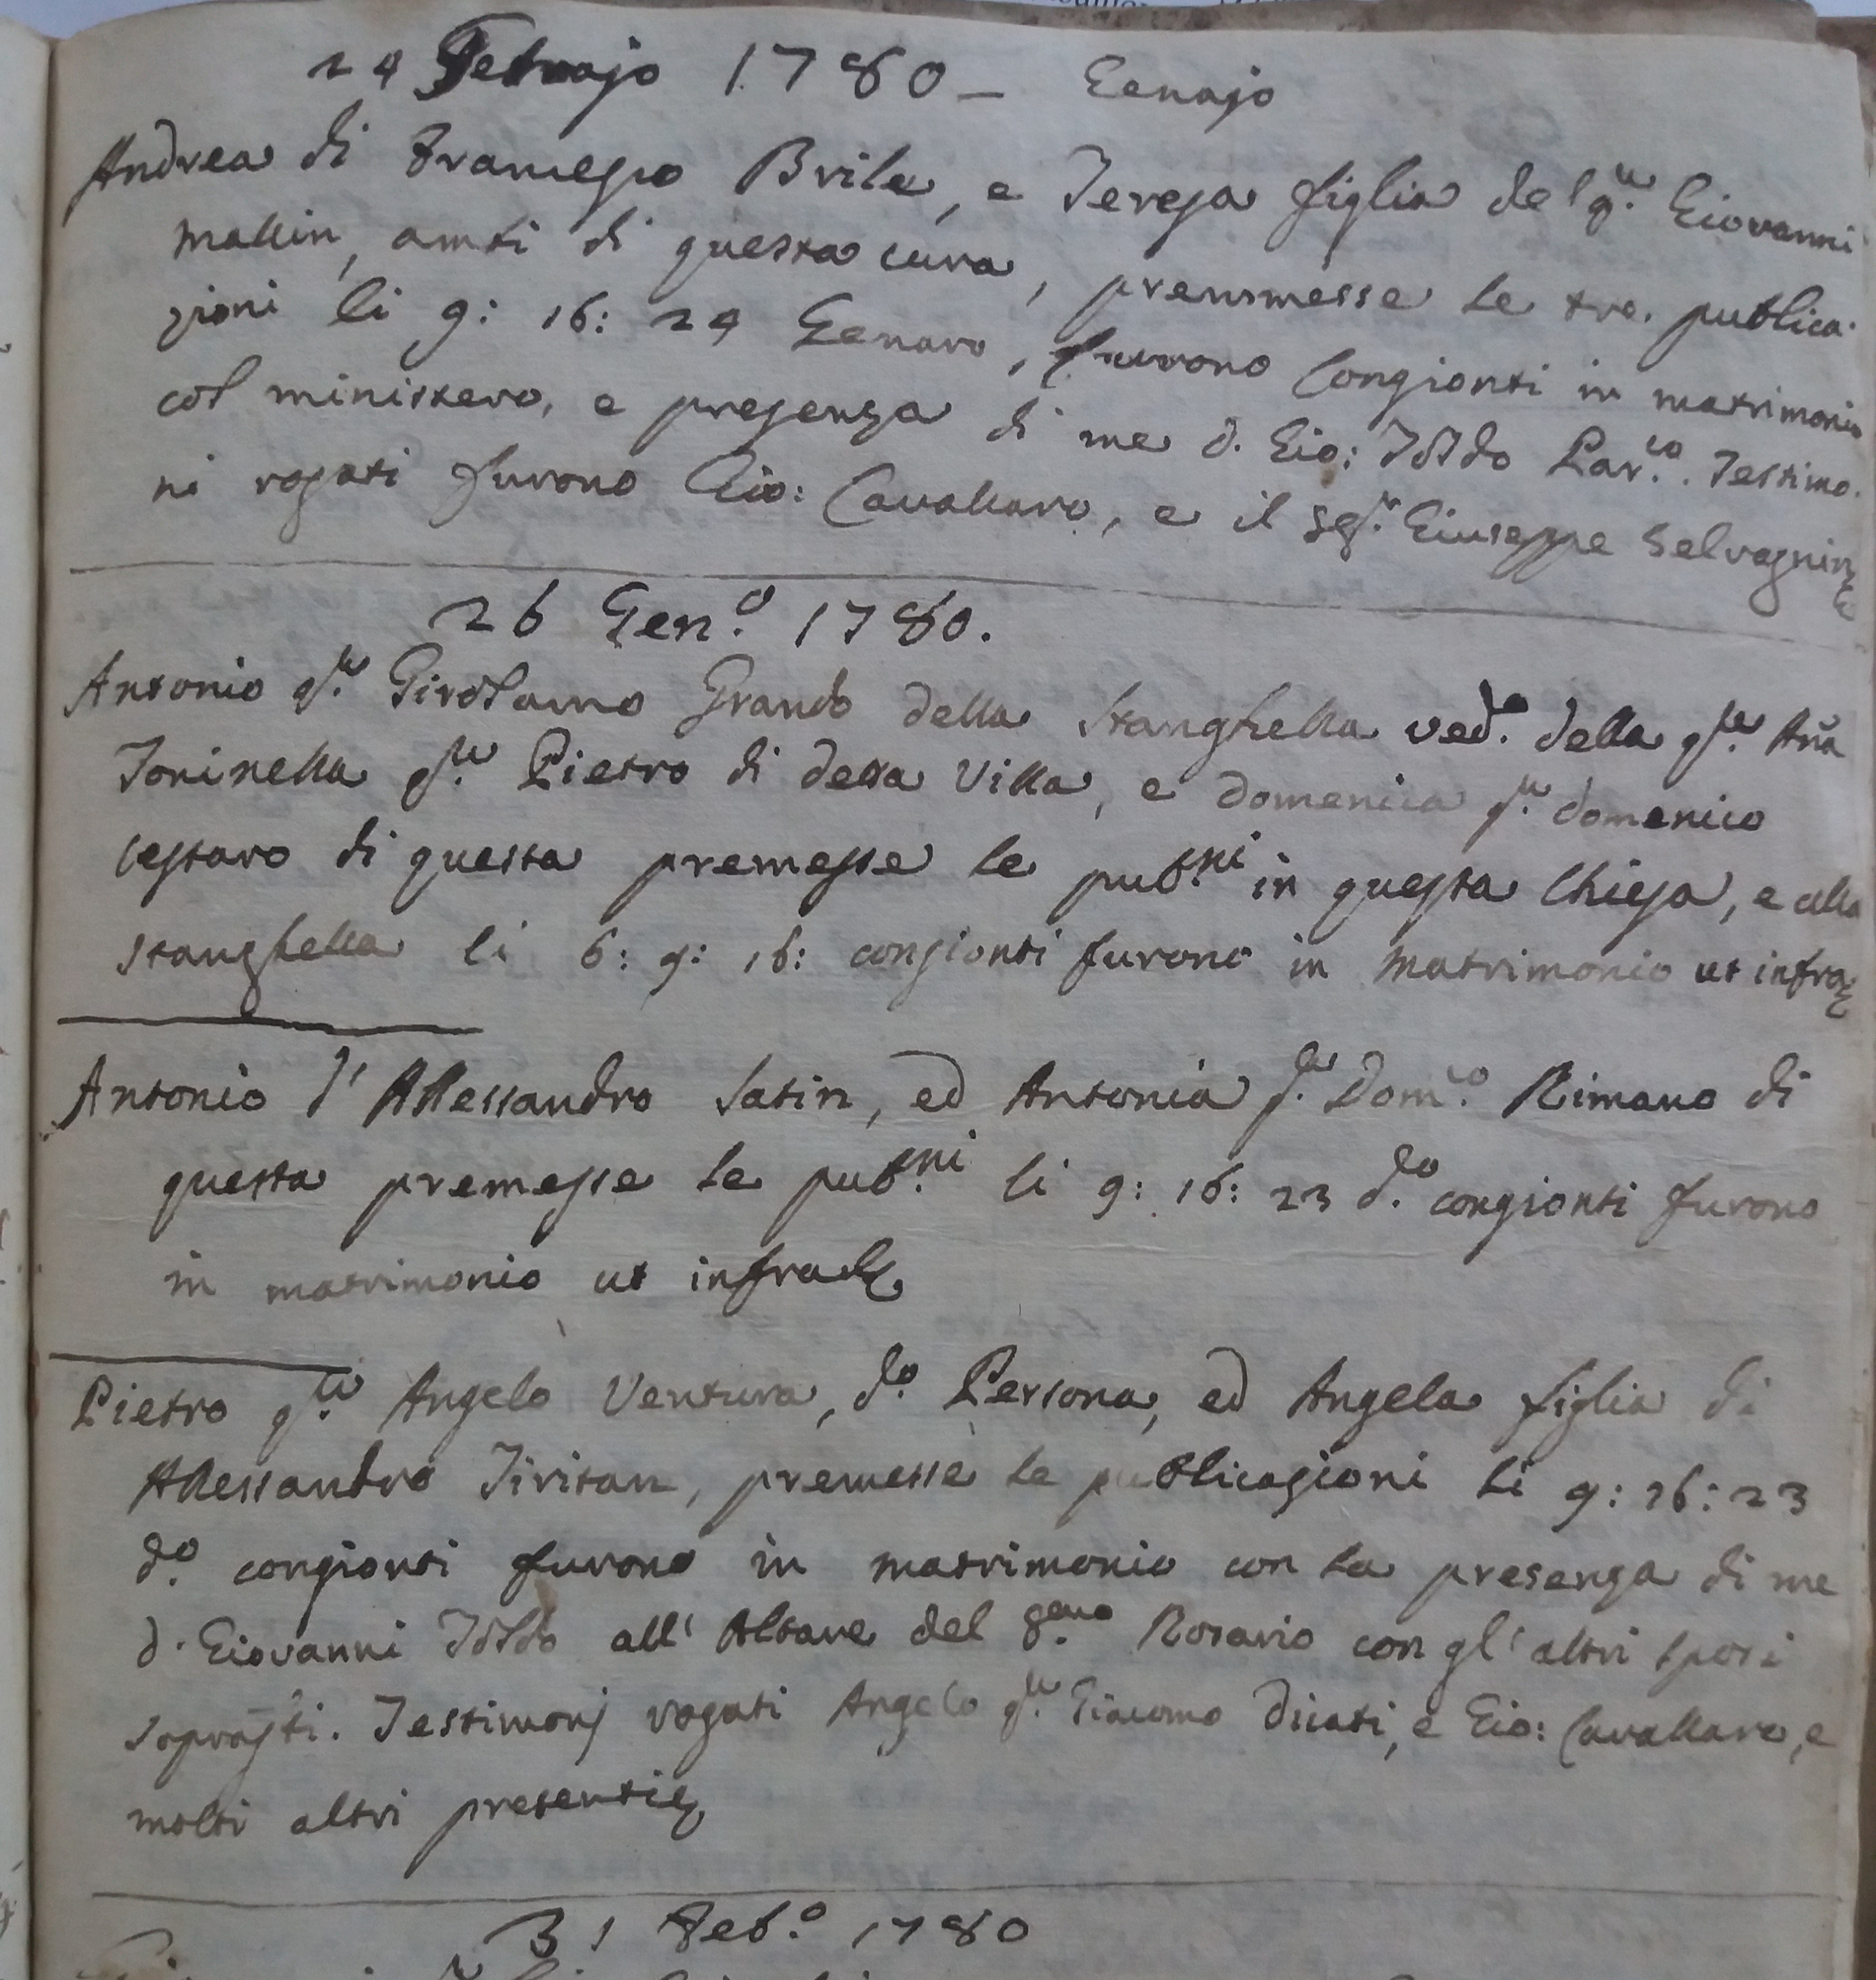 24 Febrajo 1780 _ Genajo
Andrea di Francesco Brile, e Teresa figlia del q.m Giovanni
Mallin, ambi di questa cura, premmesse le tre publica-
zioni li 9: 16: 24 Genaro, furono Congionti in matrimonio
col ministero, e presenza di me d. Gio: Toldo Par.co. Testimo-
ni rogati furono Gio: Cavallaro, e il Sg.r Giuseppe Selvagnin
26 Gen.o 1780.
Antonio q.m Girolamo Grando della Stanghella ved.o della q.m Aña
Toninella q.m Pietro di detta Villa, e Domenica q.m Domenico
Cestaro di questa premesse le pub.ni in questa Chiesa, e alla
Stanghella li 6: 9: 16: congionti furono in Matrimonio ut infra
Antonio d' Allessandro Satin, ed Antonia q.m Dom.co Rimano di
questa premesse le pub.ni li 9: 16: 23 d.o congionti furono
in matrimonio ut infra
Pietro q.m Angelo Ventura, d.o Persona, ed Angela figlia di
Allessandro Tivisan, premesse le publicazioni li 9: 16: 23
d.o congionti furono in matrimonio con la presenza di me
d. Giovanni Toldo all' Altare del S.mo Rosario con gl' altri sposi
sopradti. Testimonj rogati Angelo q.m Giacomo Dicati, e Gio: Cavallaro, e
molti altri presenti
31 Feb.o 1780